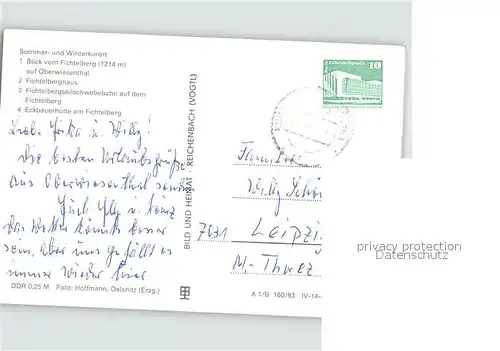 Sommer- und Winterkurort
1 Blick vom Fichtelberg (1214 m)
auf Oberwiesenthal
2 Fichtelberghaus
3 Fichtelbergseilschwebebahn auf dem
Fichtelberg
4 Eckbauerhütte am Fichtelberg
Liebe u. Willy!
Die besten Urlaubsgrüße
aus Oberwiesenthal
Euch und Heinz
Das Wetter könnte besser
sein, aber uns gefällt es
immer wieder hier
DDR 0,25 M Foto: Hoffmann, Oelsnitz (Erzg.)
BILD UND HEIMAT · REICHENBACH (VOGTL)
10
Familie
Willy
7031 Leipzig
M.-
A 1/B 160/83 IV-14-
privacy protection
Datenschutz